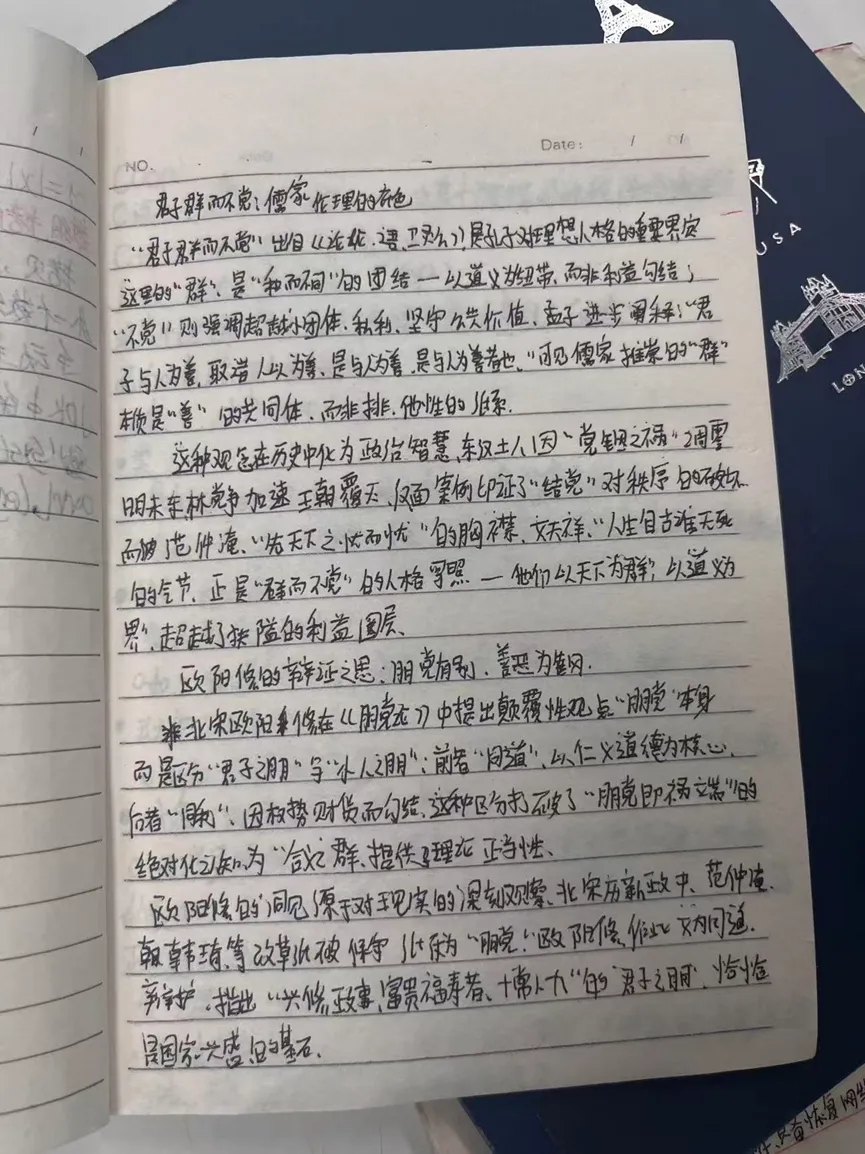 NO.
Date: / /
君子群而不党：儒家伦理的底色
"君子群而不党"出自《论语·卫灵公》是孔子对理想人格的重要界定
这里的"群"，是"和而不同"的团结——以道义为纽带，而非利益勾结；
"不党"则强调超越小团体私利，坚守公共价值，孟子进步阐释："君
子与人为善，取诸人以为善、是与人为善，是与人为善者也。"可见儒家推崇的"群"
本质是"善"的共同体，而非排他性的派系。
这种观念在历史中化为政治智慧，东汉士人因"党锢之祸"凋零
明末东林党争加速王朝覆灭，反面案例印证了"结党"对秩序的破坏
而被范仲淹、"先天下之忧而忧"的胸襟、文天祥、"人生自古谁无死
的气节、正是"群而不党"的人格写照——他们以天下为群"，以道义为
界"，超越了狭隘的利益圈层、
欧阳修的辩证之思：朋党有别，善恶为纲.
北宋欧阳修在《朋党论》中提出颠覆性观点"朋党"本身
而是区分"君子之朋"与"小人之朋"：前者"同道"，以仁义道德为核心，
后者"同利"，因权势财货而勾结、这种区分打破了"朋党即祸端"的
绝对化认知，为"合义之群、提供了理论正当性、
欧阳修的洞见源于对现实的深刻观察、北宋历新政中、范仲淹、
韩琦等改革派被保守派斥为"朋党！欧阳修作此文为同道
辩护，指出"兴修政事、富贵福寿者、十常八九"的"君子之朋"，恰恰
是国家兴盛的基石.
USA
LON